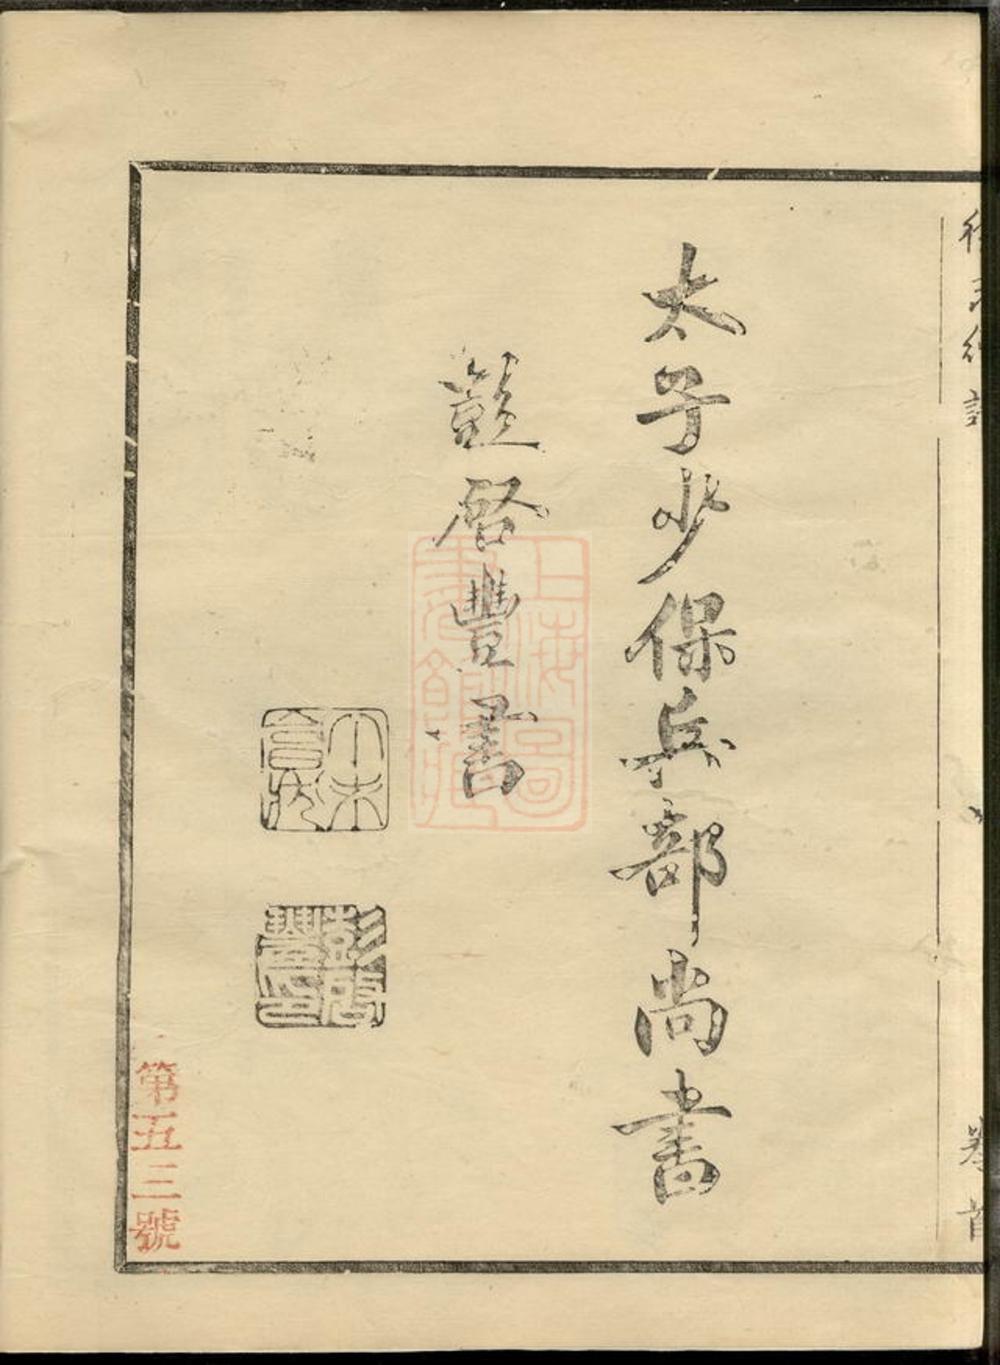 太子少保兵部尚書
彭啓豐書
彭啓豐印
上海圖書館藏
卷首
第五三號